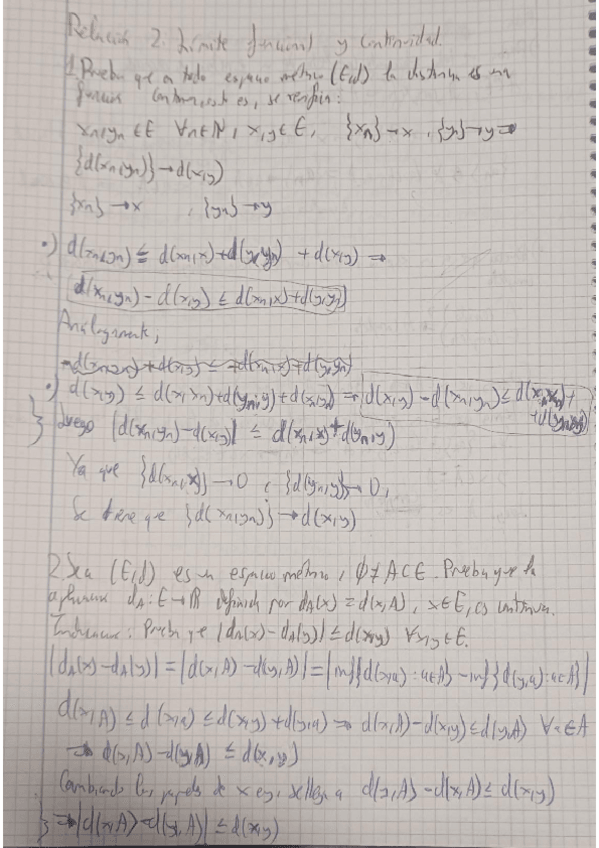 Relación 2. Límite funcional y continuidad.
1. Prueba que en todo espacio métrico (E,d) la distancia es una
función continua, esto es, se verifica:
xn,yn ∈ E ∀n∈N, x,y ∈ E, {xn}→x, {yn}→y ⇒
{d(xn,yn)}→d(x,y)
{xn}→x , {yn}→y
•) d(xn,yn) ≤ d(xn,x)+d(y,yn) + d(x,y) ⇒
d(xn,yn) - d(x,y) ≤ d(xn,x)+d(y,yn)
Análogamente,
•) d(x,y) ≤ d(x,xn)+d(yn,y)+d(xn,yn) ⇒ d(x,y) - d(xn,yn) ≤ d(x,xn)+
+d(yn,y)
Luego |d(xn,yn)-d(x,y)| ≤ d(xn,x)+d(yn,y)
Ya que {d(xn,x)}→0 , {d(yn,y)}→0,
Se tiene que {d(xn,yn)}→d(x,y)
2. Sea (E,d) es un espacio métrico, ∅≠A⊂E. Prueba que la
aplicación dA: E→R definida por dA(x)=d(x,A), x∈E, es continua.
Indicación: Prueba que |dA(x)-dA(y)| ≤ d(x,y) ∀x,y∈E.
|dA(x)-dA(y)| = |d(x,A)-d(y,A)| = |inf{d(x,a):a∈A} - inf{d(y,a):a∈A}|
d(x,A) ≤ d(x,a) ≤ d(x,y)+d(y,a) ⇒ d(x,A)-d(x,y) ≤ d(y,A) ∀a∈A
⇒ d(x,A)-d(y,A) ≤ d(x,y)
Cambiando los papeles de x e y, se llega a d(y,A)-d(x,A) ≤ d(x,y)
} ⇒ |d(x,A)-d(y,A)| ≤ d(x,y)